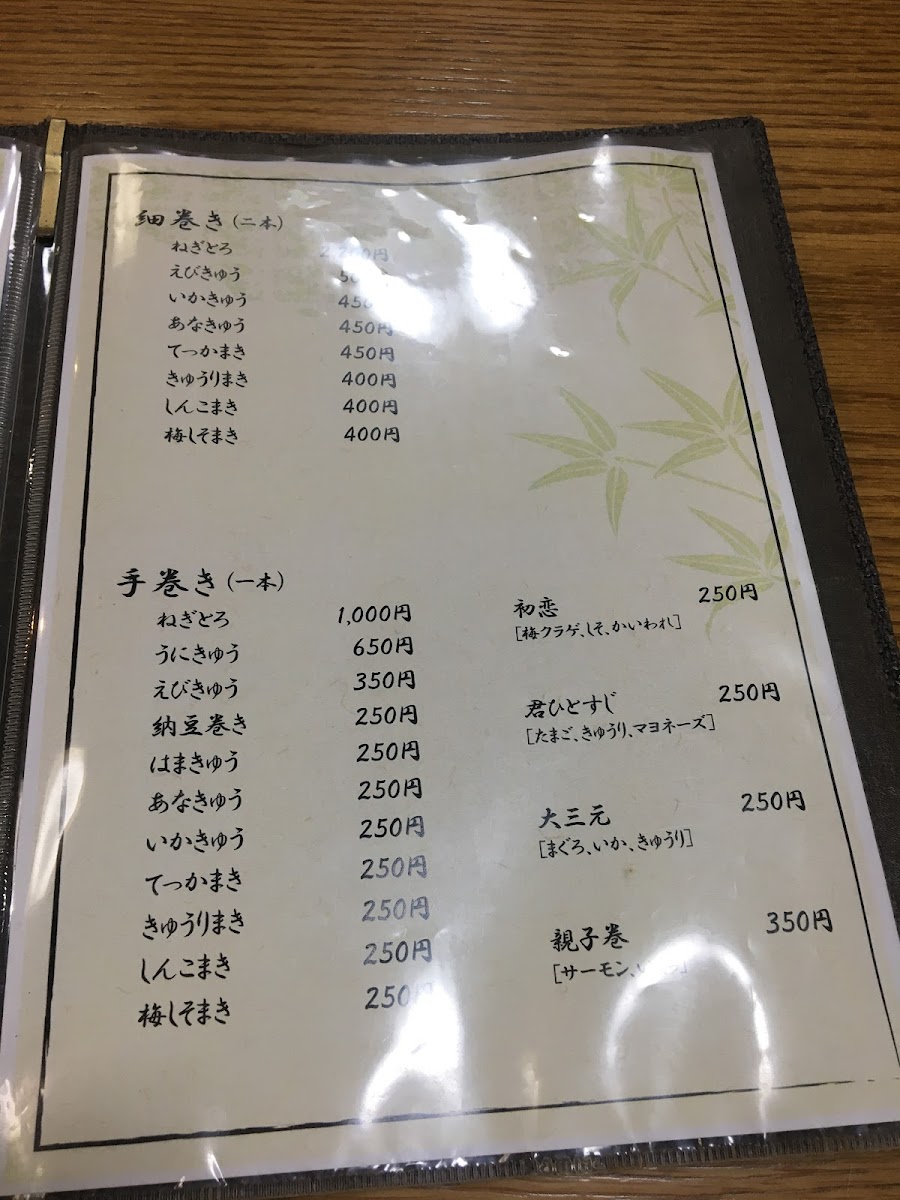 細巻き(二本)
ねぎとろ
えびきゅう
いかきゅう 450円
あなきゅう 450円
てっかまき 450円
きゅうりまき 400円
しんこまき 400円
梅しそまき 400円
手巻き(一本)
ねぎとろ 1,000円
うにきゅう 650円
えびきゅう 350円
納豆巻き 250円
はまきゅう 250円
あなきゅう 250円
いかきゅう 250円
てっかまき 250円
きゅうりまき 250円
しんこまき 250円
梅しそまき 250円
初恋 250円
[梅クラゲ、しそ、かいわれ]
君ひとすじ 250円
[たまご、きゅうり、マヨネーズ]
大三元 250円
[まぐろ、いか、きゅうり]
親子巻 350円
[サーモン、